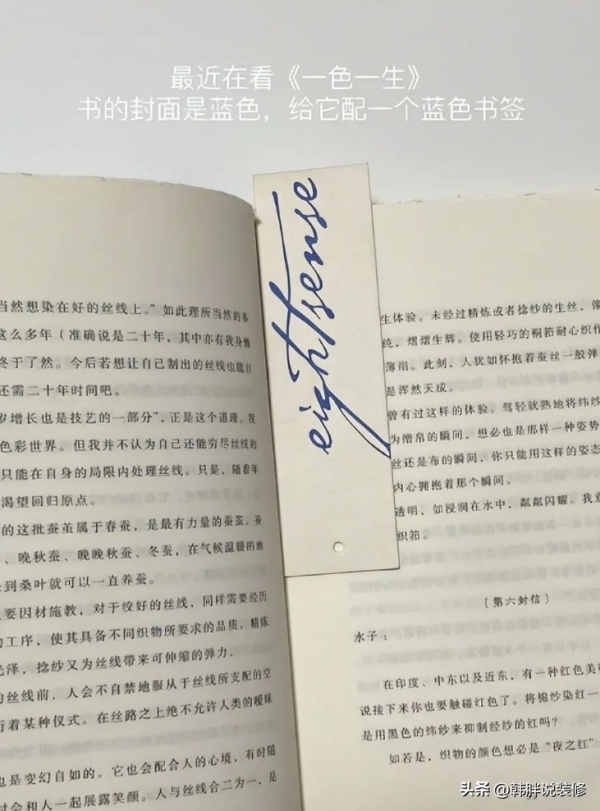 最近在看《一色一生》
书的封面是蓝色，给它配一个蓝色书签
eightsense
当然想染在好的丝线上。”如此理所当然的事
这么多年（准确说是二十年，其中亦有我身懒
终于了然。今后若想让自己制出的丝线也能自
还需二十年时间吧。
岁增长也是技艺的一部分”，正是这个道理。我
色彩世界。但我并不认为自己还能穷尽丝线的
只能在自身的局限内处理丝线。只是，随着年
渴望回归原点。
的这批蚕茧属于春蚕，是最有力量的蚕茧。蚕
、晚秋蚕、晚晚秋蚕、冬蚕，在气候温暖的地
到桑叶就可以一直养蚕。
要因材施教，对于绞好的丝线，同样需要经历
工序，使其具备不同织物所要求的品质。精炼
光泽，捻纱又为丝线带来可伸缩的弹力。
的丝线前，人会不自禁地服从于丝线所支配的空
行着某种仪式。在丝路之上绝不允许人类的暧昧
也是变幻自如的。它也会配合人的心境，有时随
会和人一起展露笑颜。人与丝线合二为一，是
生体验。未经过精炼或者捻纱的生丝，像
纯，熠熠生辉。使用轻巧的桐筘耐心织作
薄绢。此刻，人犹如怀抱着蚕丝一般弹
是浑然天成。
曾有过这样的体验。驾轻就熟地将纬纱
为缯帛的瞬间，想必也是那样一种姿势
丝还是布的瞬间，你只能用这样的姿态
内心拥抱着那个瞬间。
透明，如浸润在水中，粼粼闪耀。我意
织筘。
［第六封信］
水子：
在印度、中东以及近东，有一种红色美
说接下来你也要触碰红色了。将锦纱染红一
是用黑色的纬纱来抑制经纱的红吗？
如若是，织物的颜色想必是“夜之红”
头条 @韩胖说装修